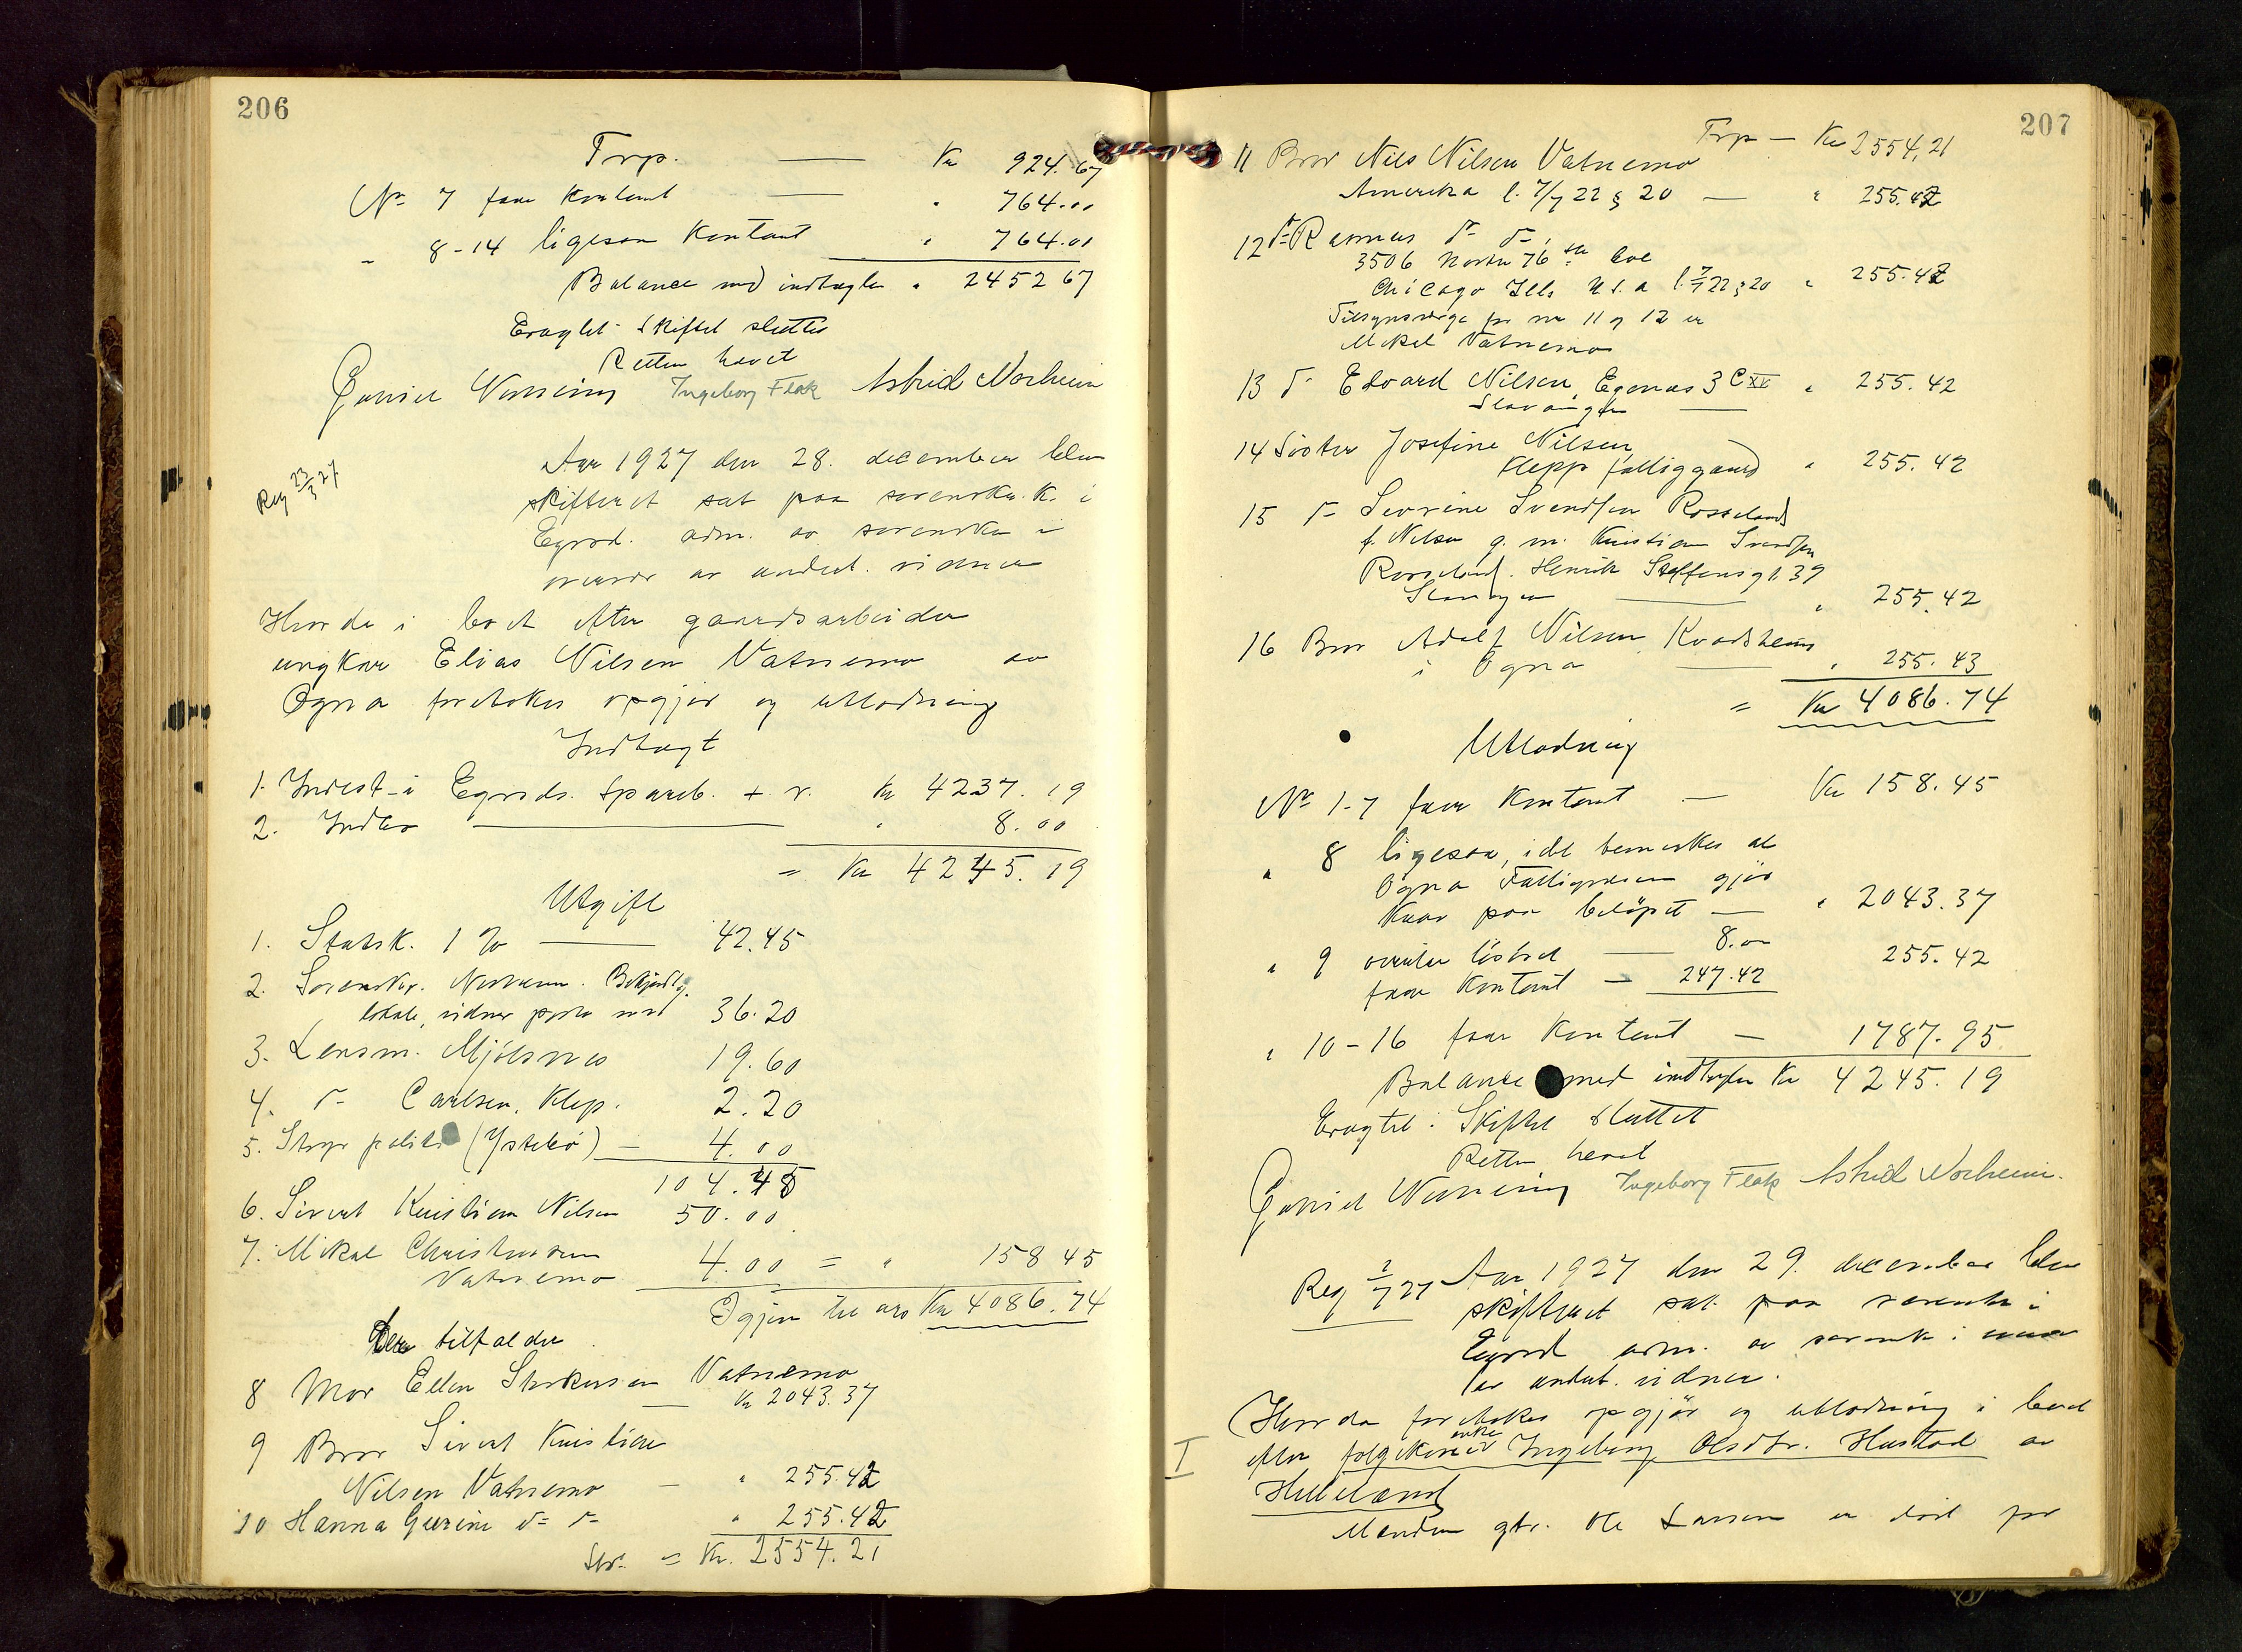 206
Trp. — Kr 924.67
No 7 faar kontant — " 764.00
" 8-14 ligesaa kontant " 764.00
Balance med indtægten " 2452 67
Eragtet: Skiftet sluttet
Retten hævet
Ingeborg Fløk Astrid Norheim
Reg 23/3 27
Aar 1927 den 28. december blev
skifteret sat paa sorenskr. k. i
Egrsd. adm. av sorenskr. i
overvær av undert. vidner
Hvor da i boet efter gaardsarbeider
ungkar Elias Nilsen Vatnemo av
Ogna foretokes opgjør og utlodning
Indtægt
1. Indest. i Egrsds. Spareb. + r. Kr 4237.19
2. Indbo — " 8.00
= Kr 4245.19
Utgift
1. Statsk. 1 % — 42.45
2. Sorenskr. Bekjendtg.
lokale, vidner porto m.v. 36.20
3. Lensm. Mjølsnes 19.60
4. do Carlsen, Klep. 2.20
5. politi (Ystebø) — 4.00
104.45
6. Sivert Kristian Nilsen 50.00
7. Mikal Christensen
Vatnemo 4.00 = " 158 45
Igjen til arv Kr 4086.74
Den tilfalder
8 Mor Ellen Vatnemo
— Kr 2043.37
9 Bror Sivert Kristian
Nilsen Vatnemo — " 255.42
10 Hanna Gurine do do " 255.42
= Kr. 2554.21
207
Trp — Kr 2554,21
11 Bror Nils Nilsen Vatnemo
Amerika l. 7/7 22 § 20 — " 255.42
12 do Rasmus do do,
3506 North 76 th Ave
Chicago Ills U.S.A l. 7/7 22 § 20 " 255.42
Tilsynsværge for no 11 og 12 er
Mikal Vatnemo
13 do Edvard Nilsen, Egenæs 3 C XV " 255.42
Stavanger —
14 Søster Josefine Nilsen,
Klepp fattiggaard " 255.42
15 do Severine Svendsen Rosseland
f. Nilsen g. m. Kristian Svendsen
Rosseland. Henrik Steffensgt. 39
Stavanger — " 255.42
16 Bror Adolf Nilsen, Kvadsheim
i Ogna — " 255.43
= Kr 4086.74
Utlodning
No 1-7 faar kontant — Kr 158.45
" 8 ligesaa, idet bemerkes at
Ogna Fattigvæsen gjør
krav paa beløpet — " 2043.37
" 9 løsøret — 8.00
faar kontant — 247.42 255.42
" 10-16 faar kontant — 1787.95
Balance med indtægten Kr 4245.19
Eragtet: Skiftet sluttet
Retten hævet
Ingeborg Fløk Astrid Norheim.
Reg 2/7 27 Aar 1927 den 29. december blev
skifteret sat paa sorenskr i
Egrsd adm. av sorensk. i
av undert. vidner.
Hvor da foretokes opgjør og utlodning i boet
I efter enke Ingeborg Olsdtr. Hustad av
Helleland
Manden gbr. Ole Larsen er død før